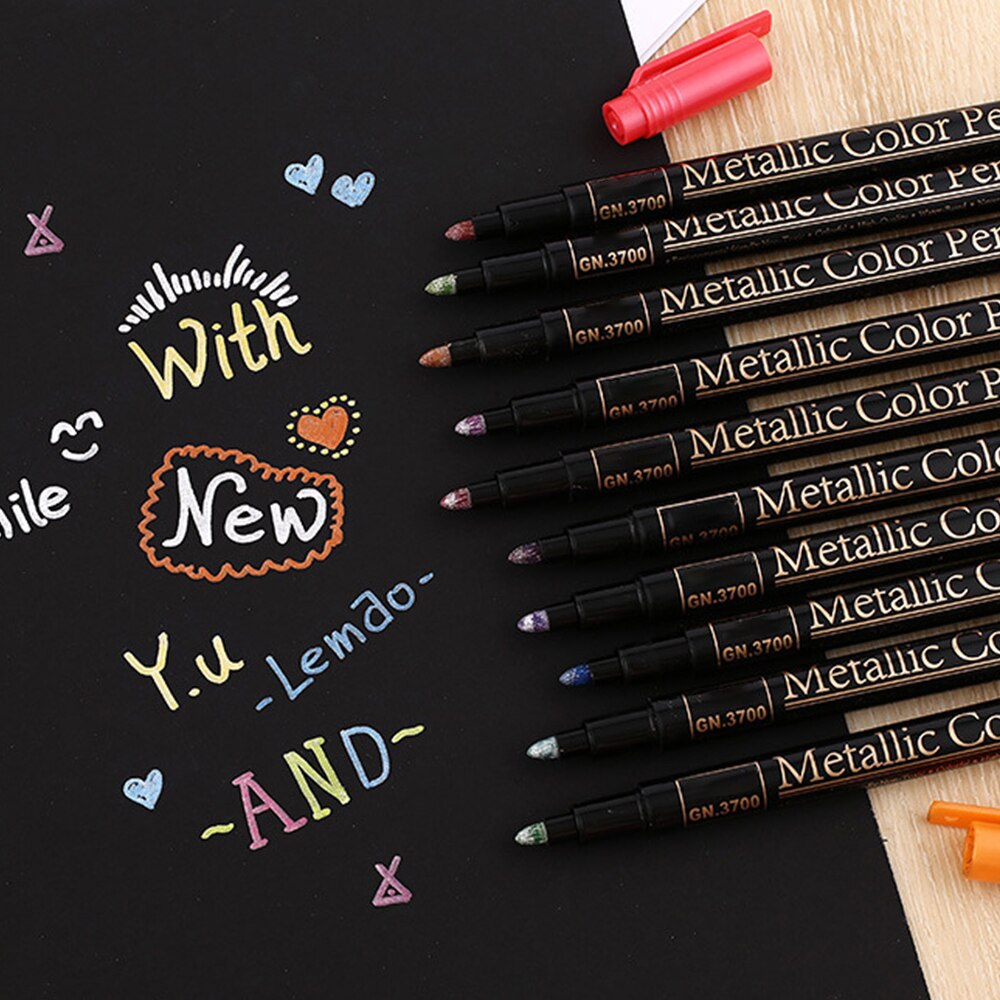 With
New
mile
Y.u
-Lemdo-
~AND~
Metallic Color Pe
GN.3700
Metallic Color Pen
GN.3700
Metallic Color Per
GN.3700
Metallic Color P
GN.3700
Metallic Color P
GN.3700
Metallic Colo
GN.3700
Metallic Co
GN.3700
Metallic C
GN.3700
Metallic Co
GN.3700
Metallic Co
GN.3700